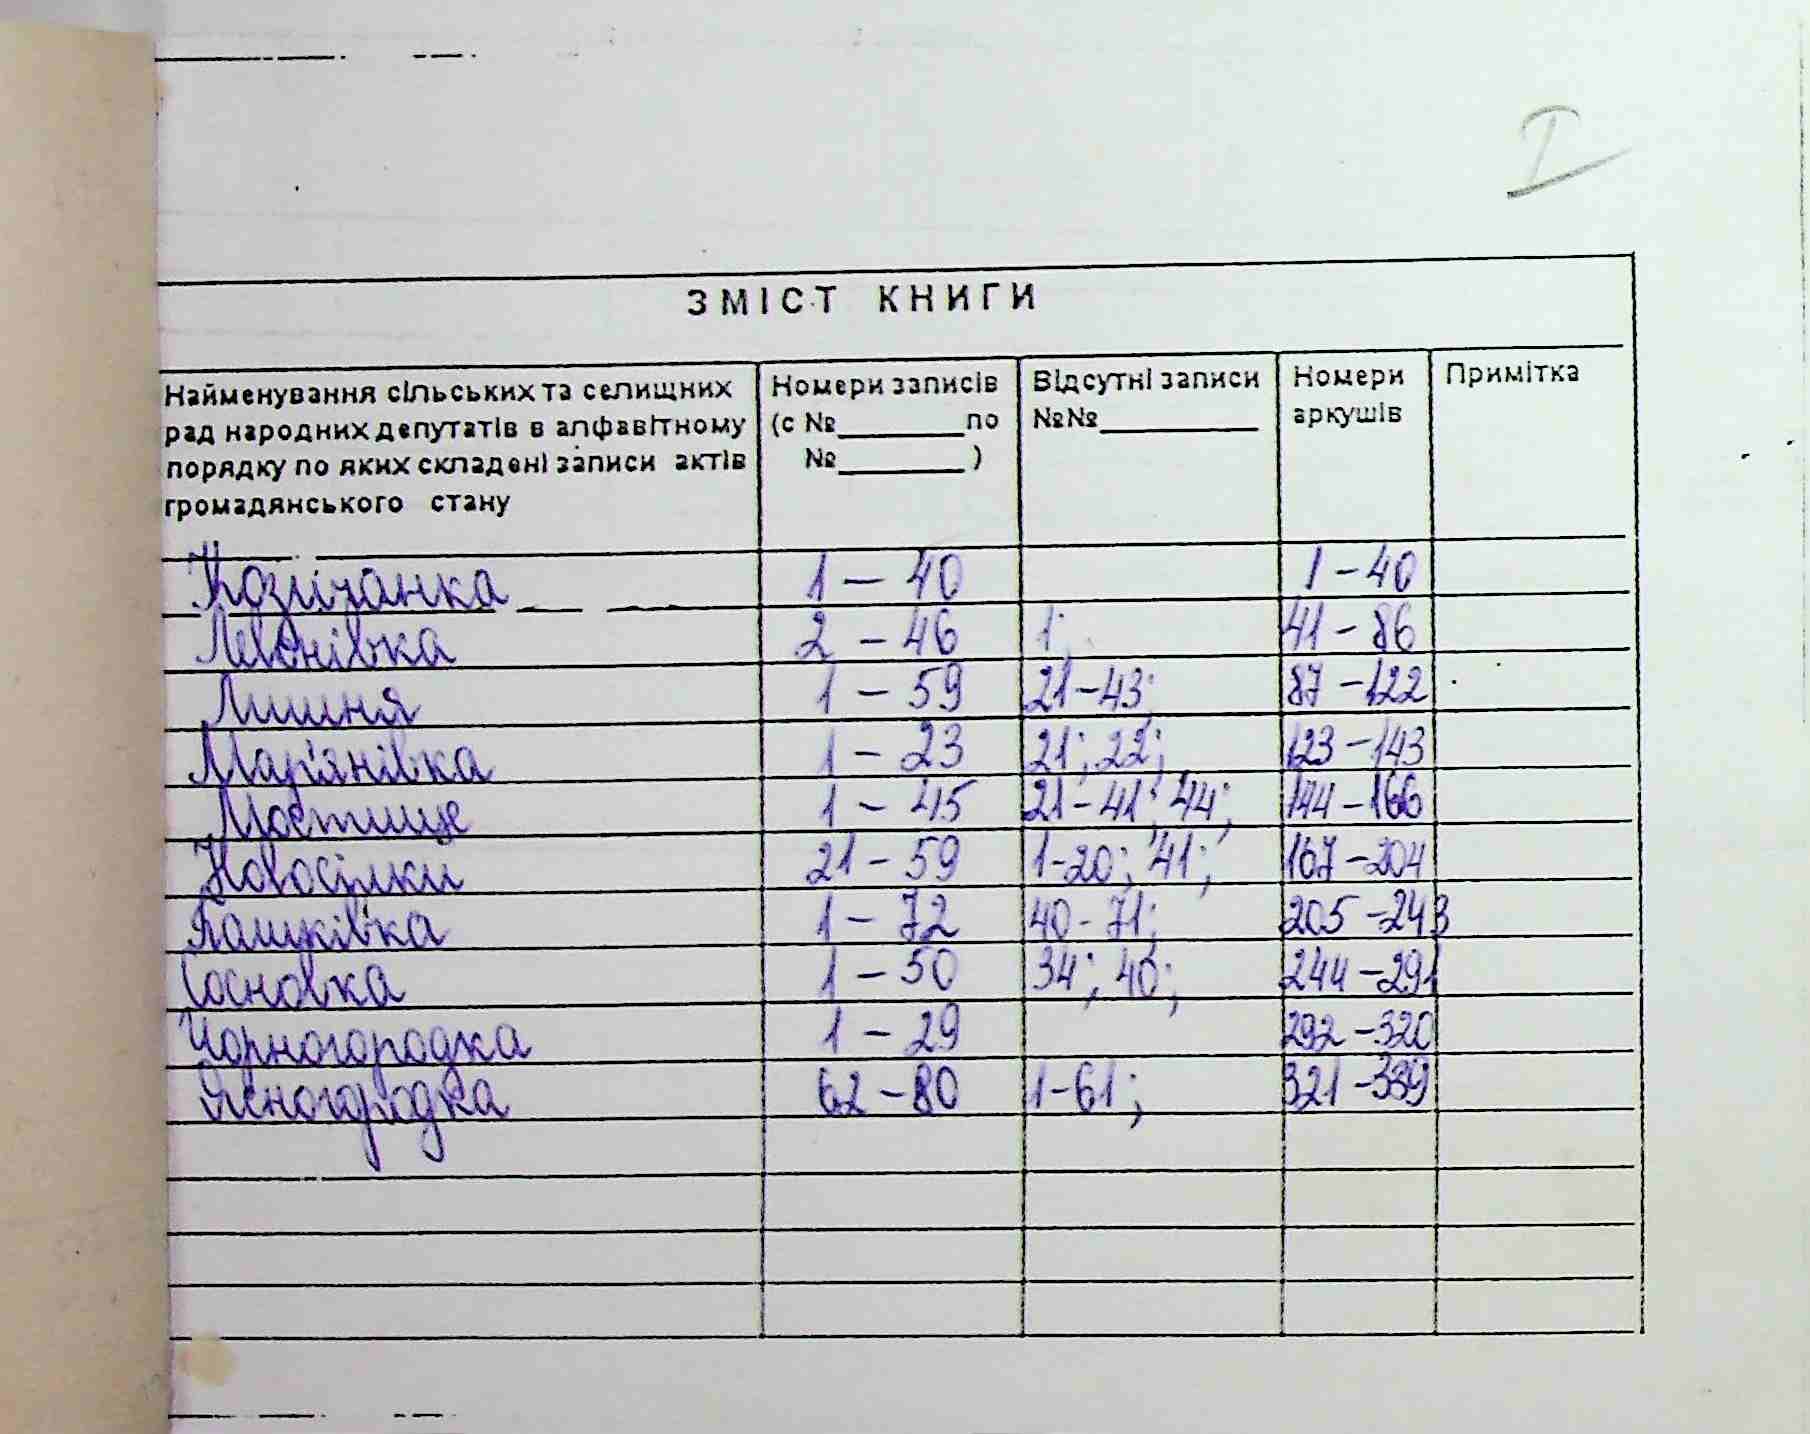 I
ЗМІСТ КНИГИ
Найменування сільських та селищних рад народних депутатів в алфавітному порядку по яких складені записи актів громадянського стану
Номери записів (с №________по №________)
Відсутні записи №№__________
Номери аркушів
Примітка
Козичанка 1 – 40 1 – 40
Леонівка 2 – 46 1; 41 – 86
Лишня 1 – 59 21–43; 87 – 122
Мар'янівка 1 – 23 21; 22; 123 – 143
Мостище 1 – 45 21–41; 44; 144 – 166
Новосілки 21 – 59 1–20; 41; 167 – 204
Пашківка 1 – 72 40–71; 205 – 243
Сосновка 1 – 50 34; 40; 244 – 291
Чорногородка 1 – 29 292 – 320
Ясногородка 62 – 80 1–61; 321 – 339